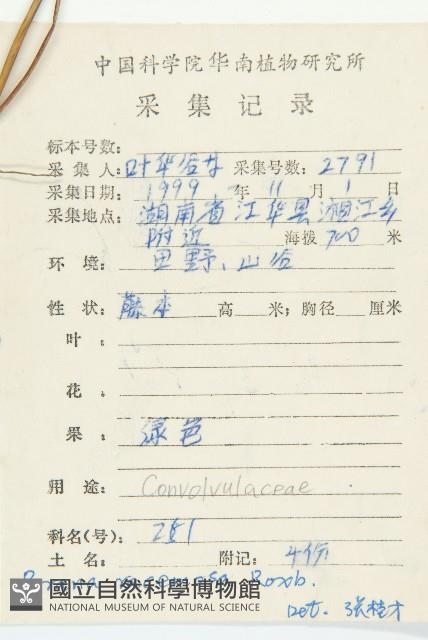 中国科学院华南植物研究所
采集记录
标本号数：
采集人：叶华谷 采集号数：2791
采集日期：1999 年 11 月 1 日
采集地点：湖南省江华县湘江乡
附近 海拨 700 米
环境：田野、山谷
性状：藤本 高 米；胸径 厘米
叶：
花：
果：绿色
用途：Convolvulaceae
科名(号)：251
土名： 附记：4份
racemosa Roxb.
國立自然科學博物館
NATIONAL MUSEUM OF NATURAL SCIENCE
Det. 张桂才